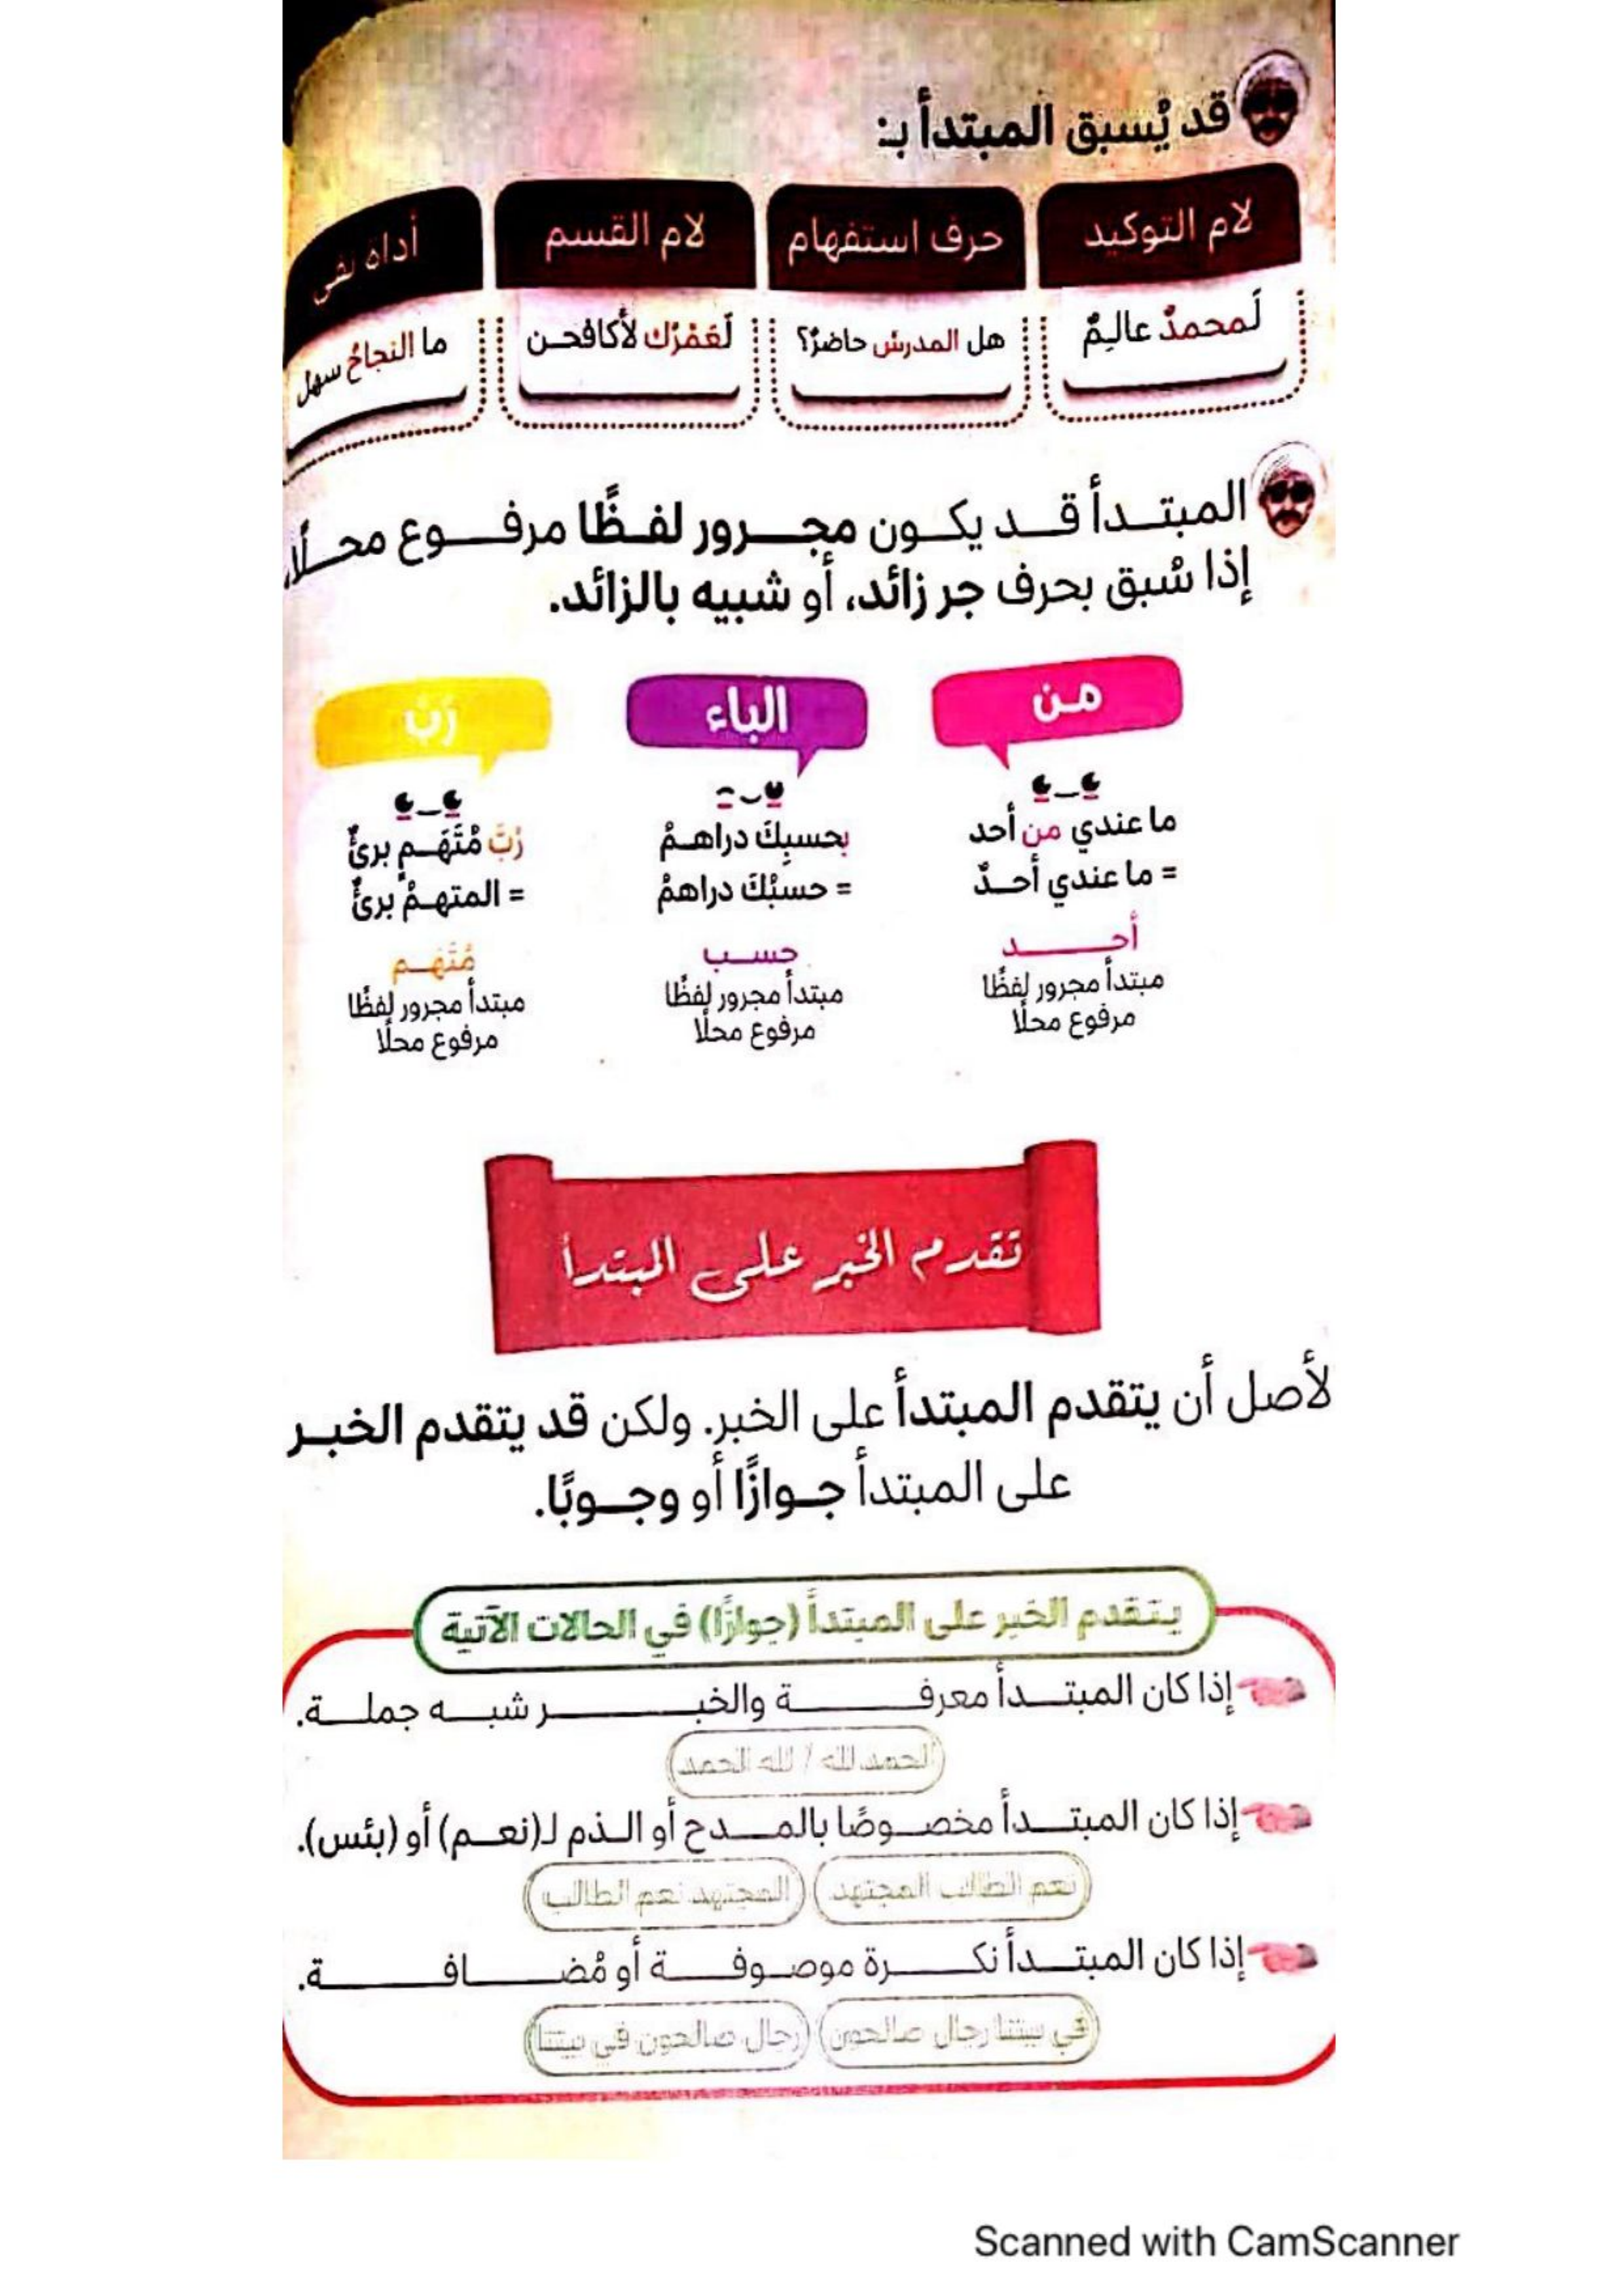 قد يُسبق المبتدأ بـ:
لام التوكيد
حرف استفهام
لام القسم
أداة نفى
لَمحمدٌ عالمٌ
هل المدرسُ حاضرٌ؟
لَعَمْرُك لأكافحـن
ما النجاحُ سهل
المبتـدأ قـد يكـون مجـرور لفـظًا مرفـوع محـلًا،
إذا سُبق بحرف جر زائد، أو شبيه بالزائد.
من
الباء
رُبَّ
ما عندي من أحد
= ما عندي أحـدٌ
أحـد
مبتدأ مجرور لفظًا
مرفوع محلًا
بحسبِكَ دراهـمٌ
= حسبُكَ دراهمٌ
حسـب
مبتدأ مجرور لفظًا
مرفوع محلًا
رُبَّ مُتَّهَـمٍ برئٌ
= المتهـمُ برئٌ
مُتَّهَـم
مبتدأ مجرور لفظًا
مرفوع محلًا
تقدم الخبر على المبتدأ
لأصل أن يتقدم المبتدأ على الخبر. ولكن قد يتقدم الخبـر
على المبتدأ جـوازًا أو وجـوبًا.
يـتـقدم الخبر على المبتدأ (جوازًا) في الحالات الآتية
إذا كان المبتـدأ معرفـة والخبـر شبـه جملـة.
الحمد لله / لله الحمد
إذا كان المبتـدأ مخصـوصًا بالمـدح أو الـذم لـ(نعـم) أو (بئس).
نعم الطالب المجتهد
المجتهد نعم الطالب
إذا كان المبتـدأ نكـرة موصـوفـة أو مُضـافـة.
في بيتنا رجال صالحون
رجال صالحون في بيتنا
Scanned with CamScanner